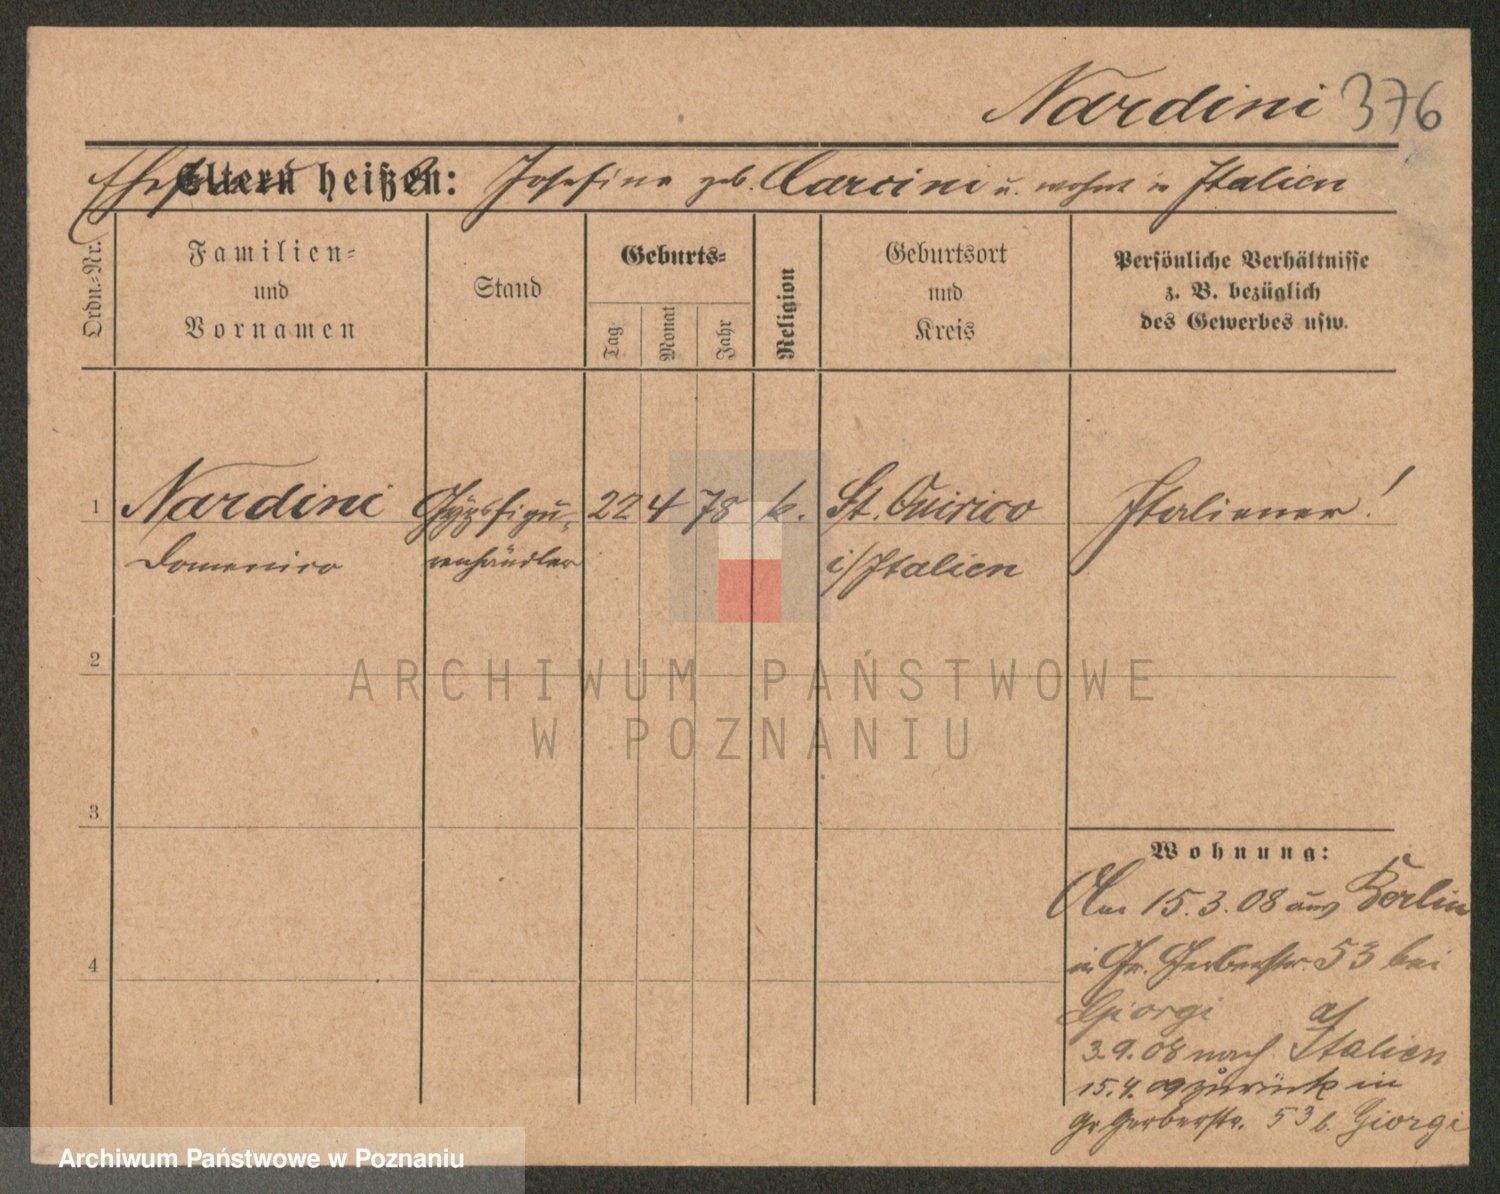 Nardini 376
Ehefrau Eltern heißen: Josefina geb. Carcini u. wohnt in Italien
Ordn.-Nr.
Familien-
und
Vornamen
Stand
Geburts-
Tag
Monat
Jahr
Religion
Geburtsort
und
Kreis
Persönliche Verhältnisse
z. B. bezüglich
des Gewerbes usw.
1 Nardini Gypsfigu- 22 4 78 k. St. Quirico Italiener!
Domenico renhändler i/Italien
2
ARCHIWUM PAŃSTWOWE
W POZNANIU
3
Wohnung:
Am 15.3.08 aus Berlin
4
in Gr. Gerberstr. 53 bei
Giorgi
3.9.08 nach Italien
15.4.09 zurück in
Gr. Gerberstr. 53 b. Giorgi
Archiwum Państwowe w Poznaniu